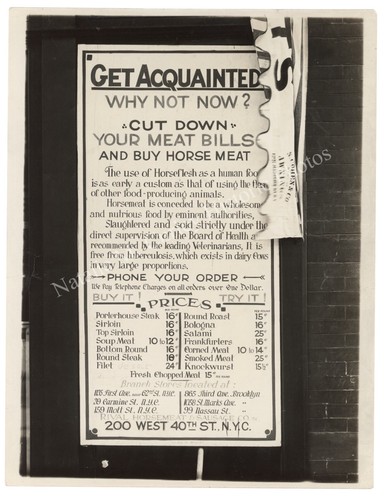 GET ACQUAINTED
WHY NOT NOW?
CUT DOWN
YOUR MEAT BILLS
AND BUY HORSE MEAT
The use of Horseflesh as a human food
is as early a custom as that of using the flesh
of other food-producing animals.
Horsemeat is conceded to be a wholesome
and nutritious food by eminent authorities,
Slaughtered and sold strictly under the
direct supervision of the Board of Health
recommended by the leading Veterinarians, It is
free from tuberculosis, which exists in dairy cows
in very large proportions.
PHONE YOUR ORDER
We Pay Telephone Charges on all orders over One Dollar.
BUY IT! PRICES TRY IT!
Porterhouse Steak 16¢ Round Roast 15¢
Sirloin 16¢ Bologna 16¢
Top Sirloin 16¢ Salami 25¢
Soup Meat 10 to 12¢ Frankfurters 16¢
Bottom Round 16¢ Corned Meat 10 to 14¢
Round Steak 18¢ Smoked Meat 25¢
Filet 24¢ Knockwurst 15½¢
Fresh Chopped Meat 15¢
Branch Stores Located at:
1115 First Ave. 62nd St. N.Y.C. 865 Third Ave. Brooklyn
39 Carmine St. N.Y.C. 1038 St. Marks Ave. "
159 Mott St. N.Y.C. 99 Nassau St. "
RIVAL HORSEMEAT & SAUSAGE CO.
200 WEST 40TH ST., N.Y.C.
TS